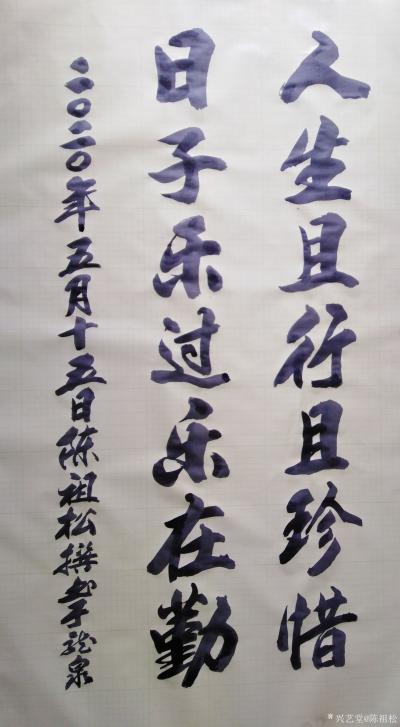 人生且行且珍惜
日子乐过乐在勤
二〇二〇年五月十五日陈祖松撰书于龙泉
兴艺堂@陈祖松